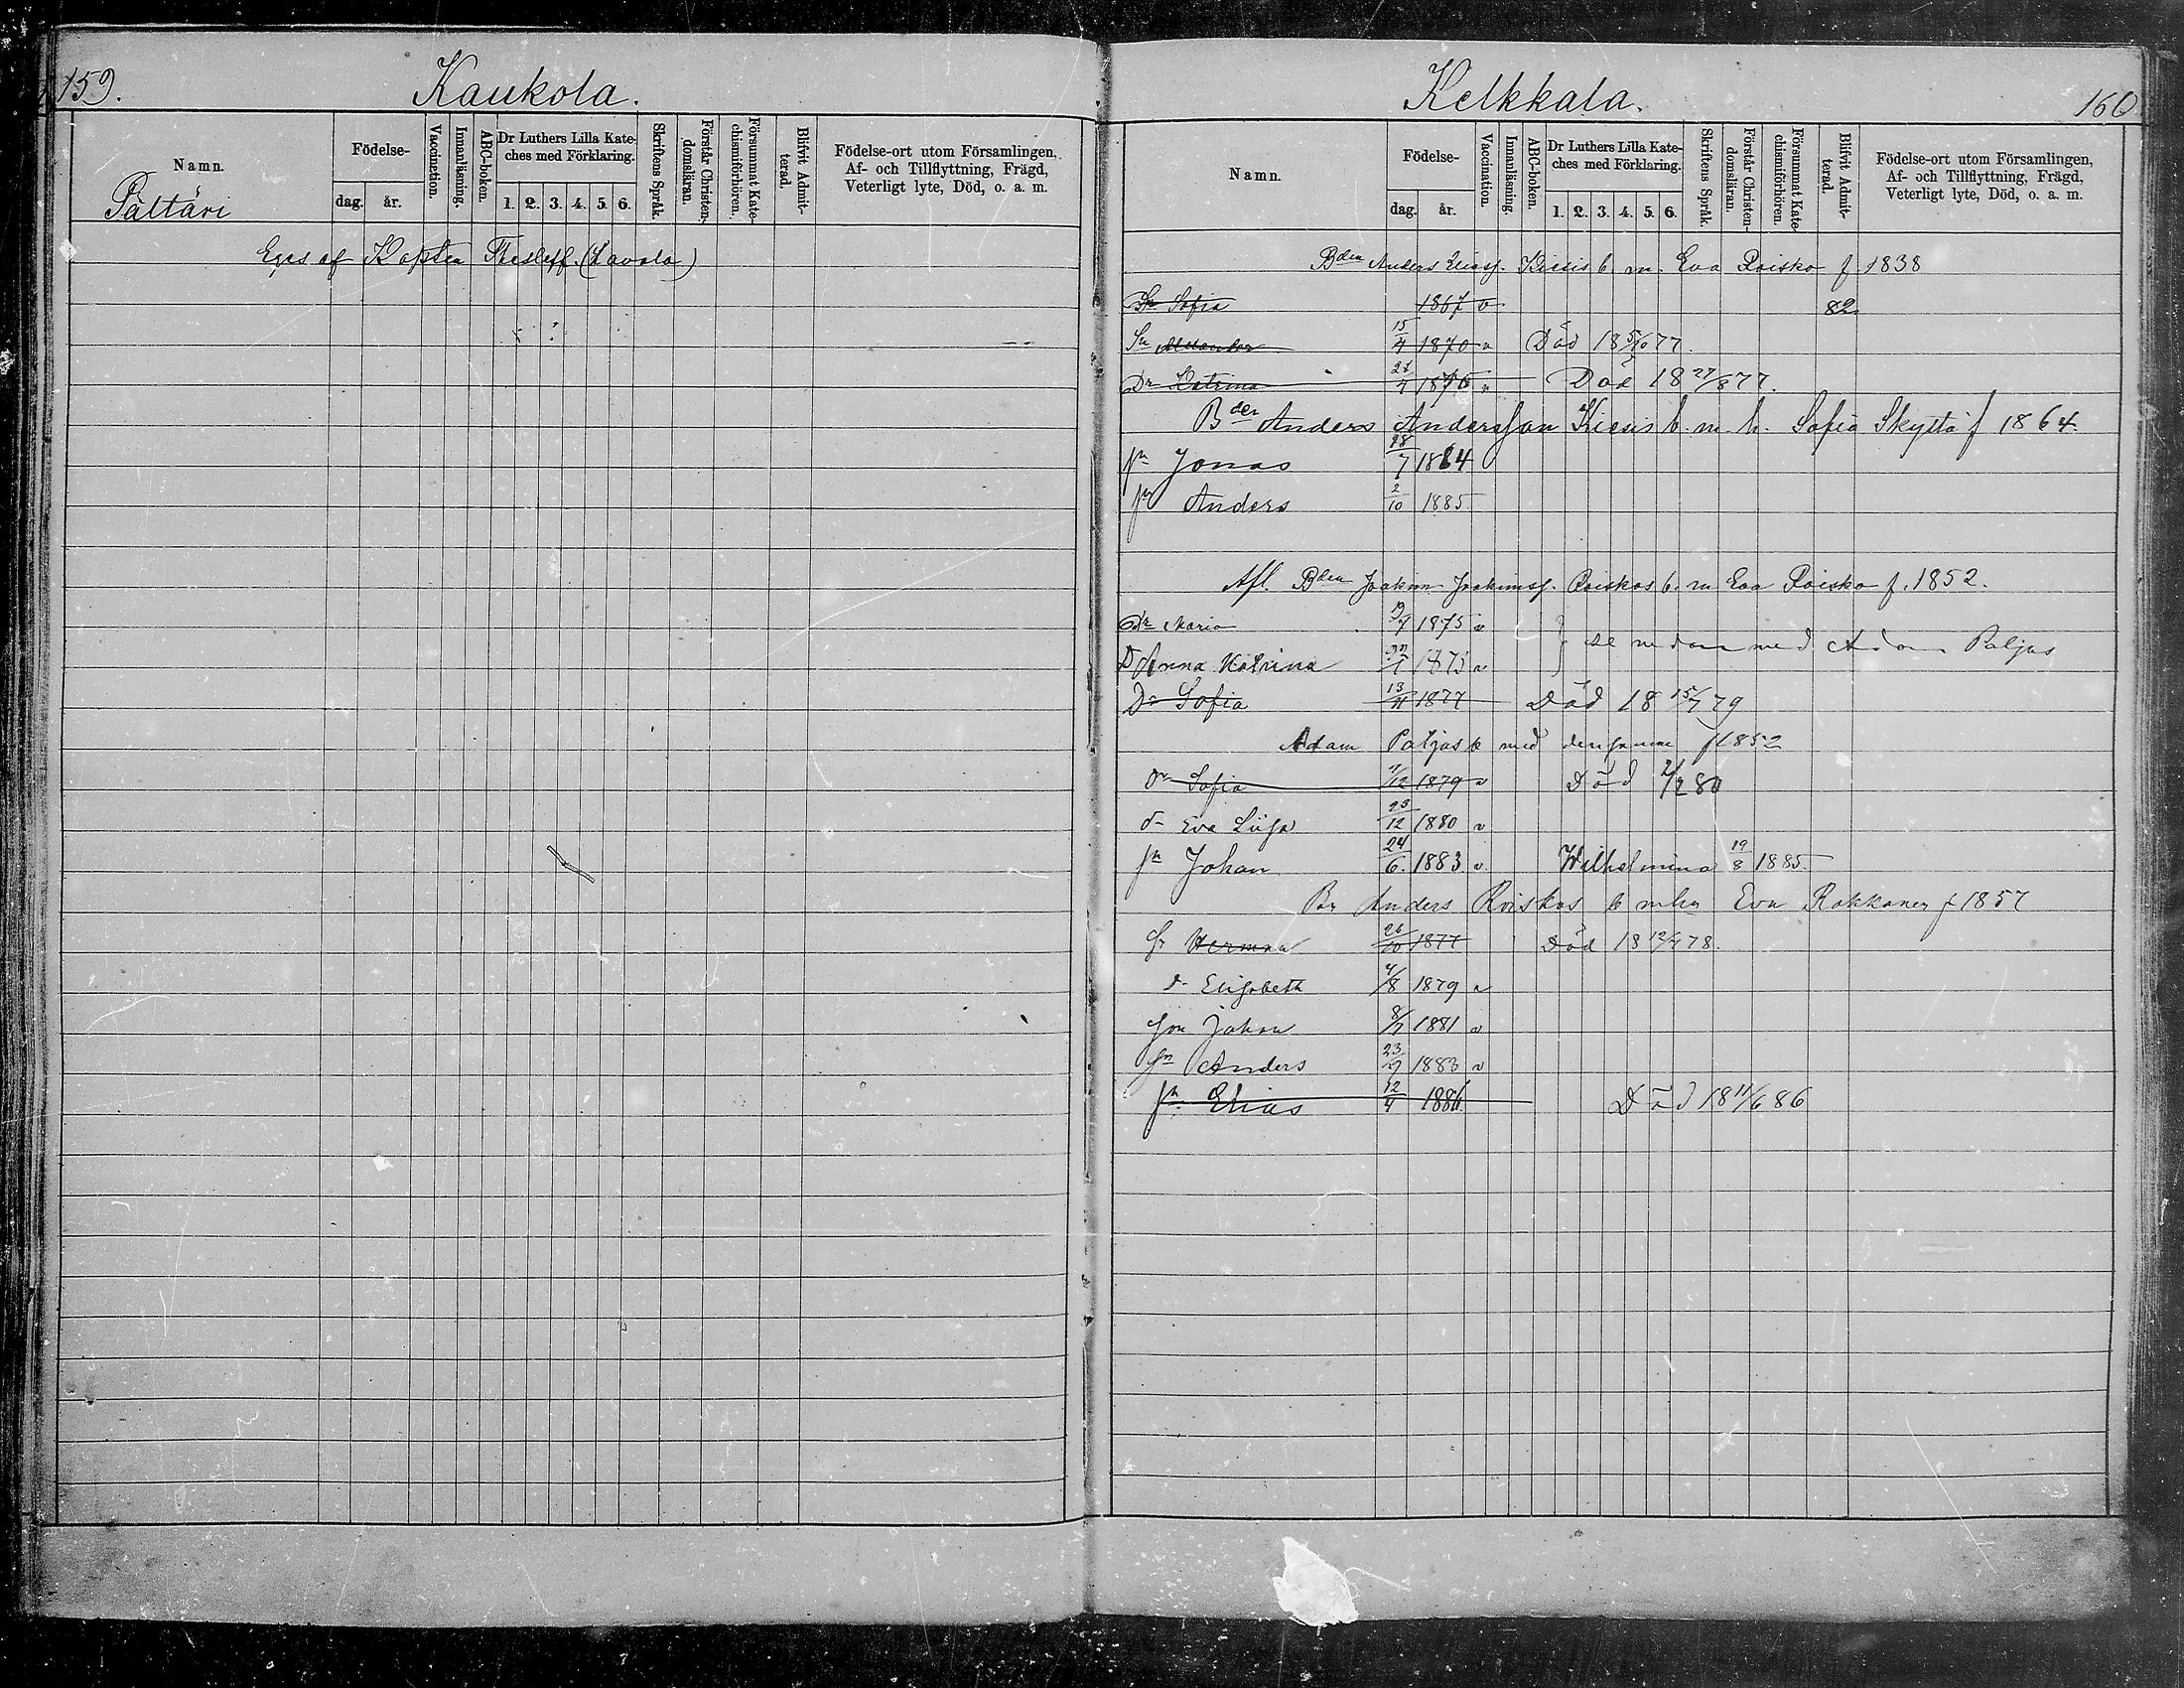 159.
Kaukola.
Namn.
Pältäri
Födelse-
dag. år.
Vaccination.
Innanläsning.
ABC-boken.
Dr Luthers Lilla Kate-
ches med Förklaring.
1. 2. 3. 4. 5. 6.
Skriftens Språk.
Förstår Christen-
domsläran.
Försummat Kate-
chismiförhören.
Blifvit Admit-
terad.
Födelse-ort utom Församlingen,
Af- och Tillflyttning, Frägd,
Veterligt lyte, Död, o. a. m.
Eges af Kapten Thesleff. (Lavola)
Kelkkala.
160
Namn.
Födelse-
dag. år.
Vaccination.
Innanläsning.
ABC-boken.
Dr Luthers Lilla Kate-
ches med Förklaring.
1. 2. 3. 4. 5. 6.
Skriftens Språk.
Förstår Christen-
domsläran.
Försummat Kate-
chismiförhören.
Blifvit Admit-
terad.
Födelse-ort utom Församlingen,
Af- och Tillflyttning, Frägd,
Veterligt lyte, Död, o. a. m.
Bden Anders Eliass. Kiesis b. m. Eva Roisko f. 1838
Dr Sofia 1867 v 82
Sn 15/4 1870 v Död 18 5/10 77.
Dr Katrina 4 1876 v Död 18 27/8 77.
Bden Anders Andersson Kiesis b. m. h. Sofia Skyttä f 1864.
sn Jonas 28/7 1884
sn Anders 2/10 1885
Afl. Bden Joakim Joakimss. Roiskos b. m Eva Roisko f. 1852.
Dr Maria 1875 v
D Anna Katrina 1875 v } se nedan med Adam Paljas
Dr Sofia 13/11 1877 Död 18 15/7 79
Adam Paljas b med densamma f 1852
dr Sofia 1/12 1879 v Död 2/2 80
dr Eva Liisa 25/12 1880 v
sn Johan 24/6. 1883. v. Wilhelmina 19/8 1885.
Br Anders Roiskos b mhu Eva Rokkanen f 1857
sn Herman 26/10 1877 Död 18 12/4 78.
dr Elisabeth 4/8 1879 v
son Johan 8/7 1881 v
sn Anders 23/9 1883 v
sn Elias 12/4 1886. Död 18 11/6 86